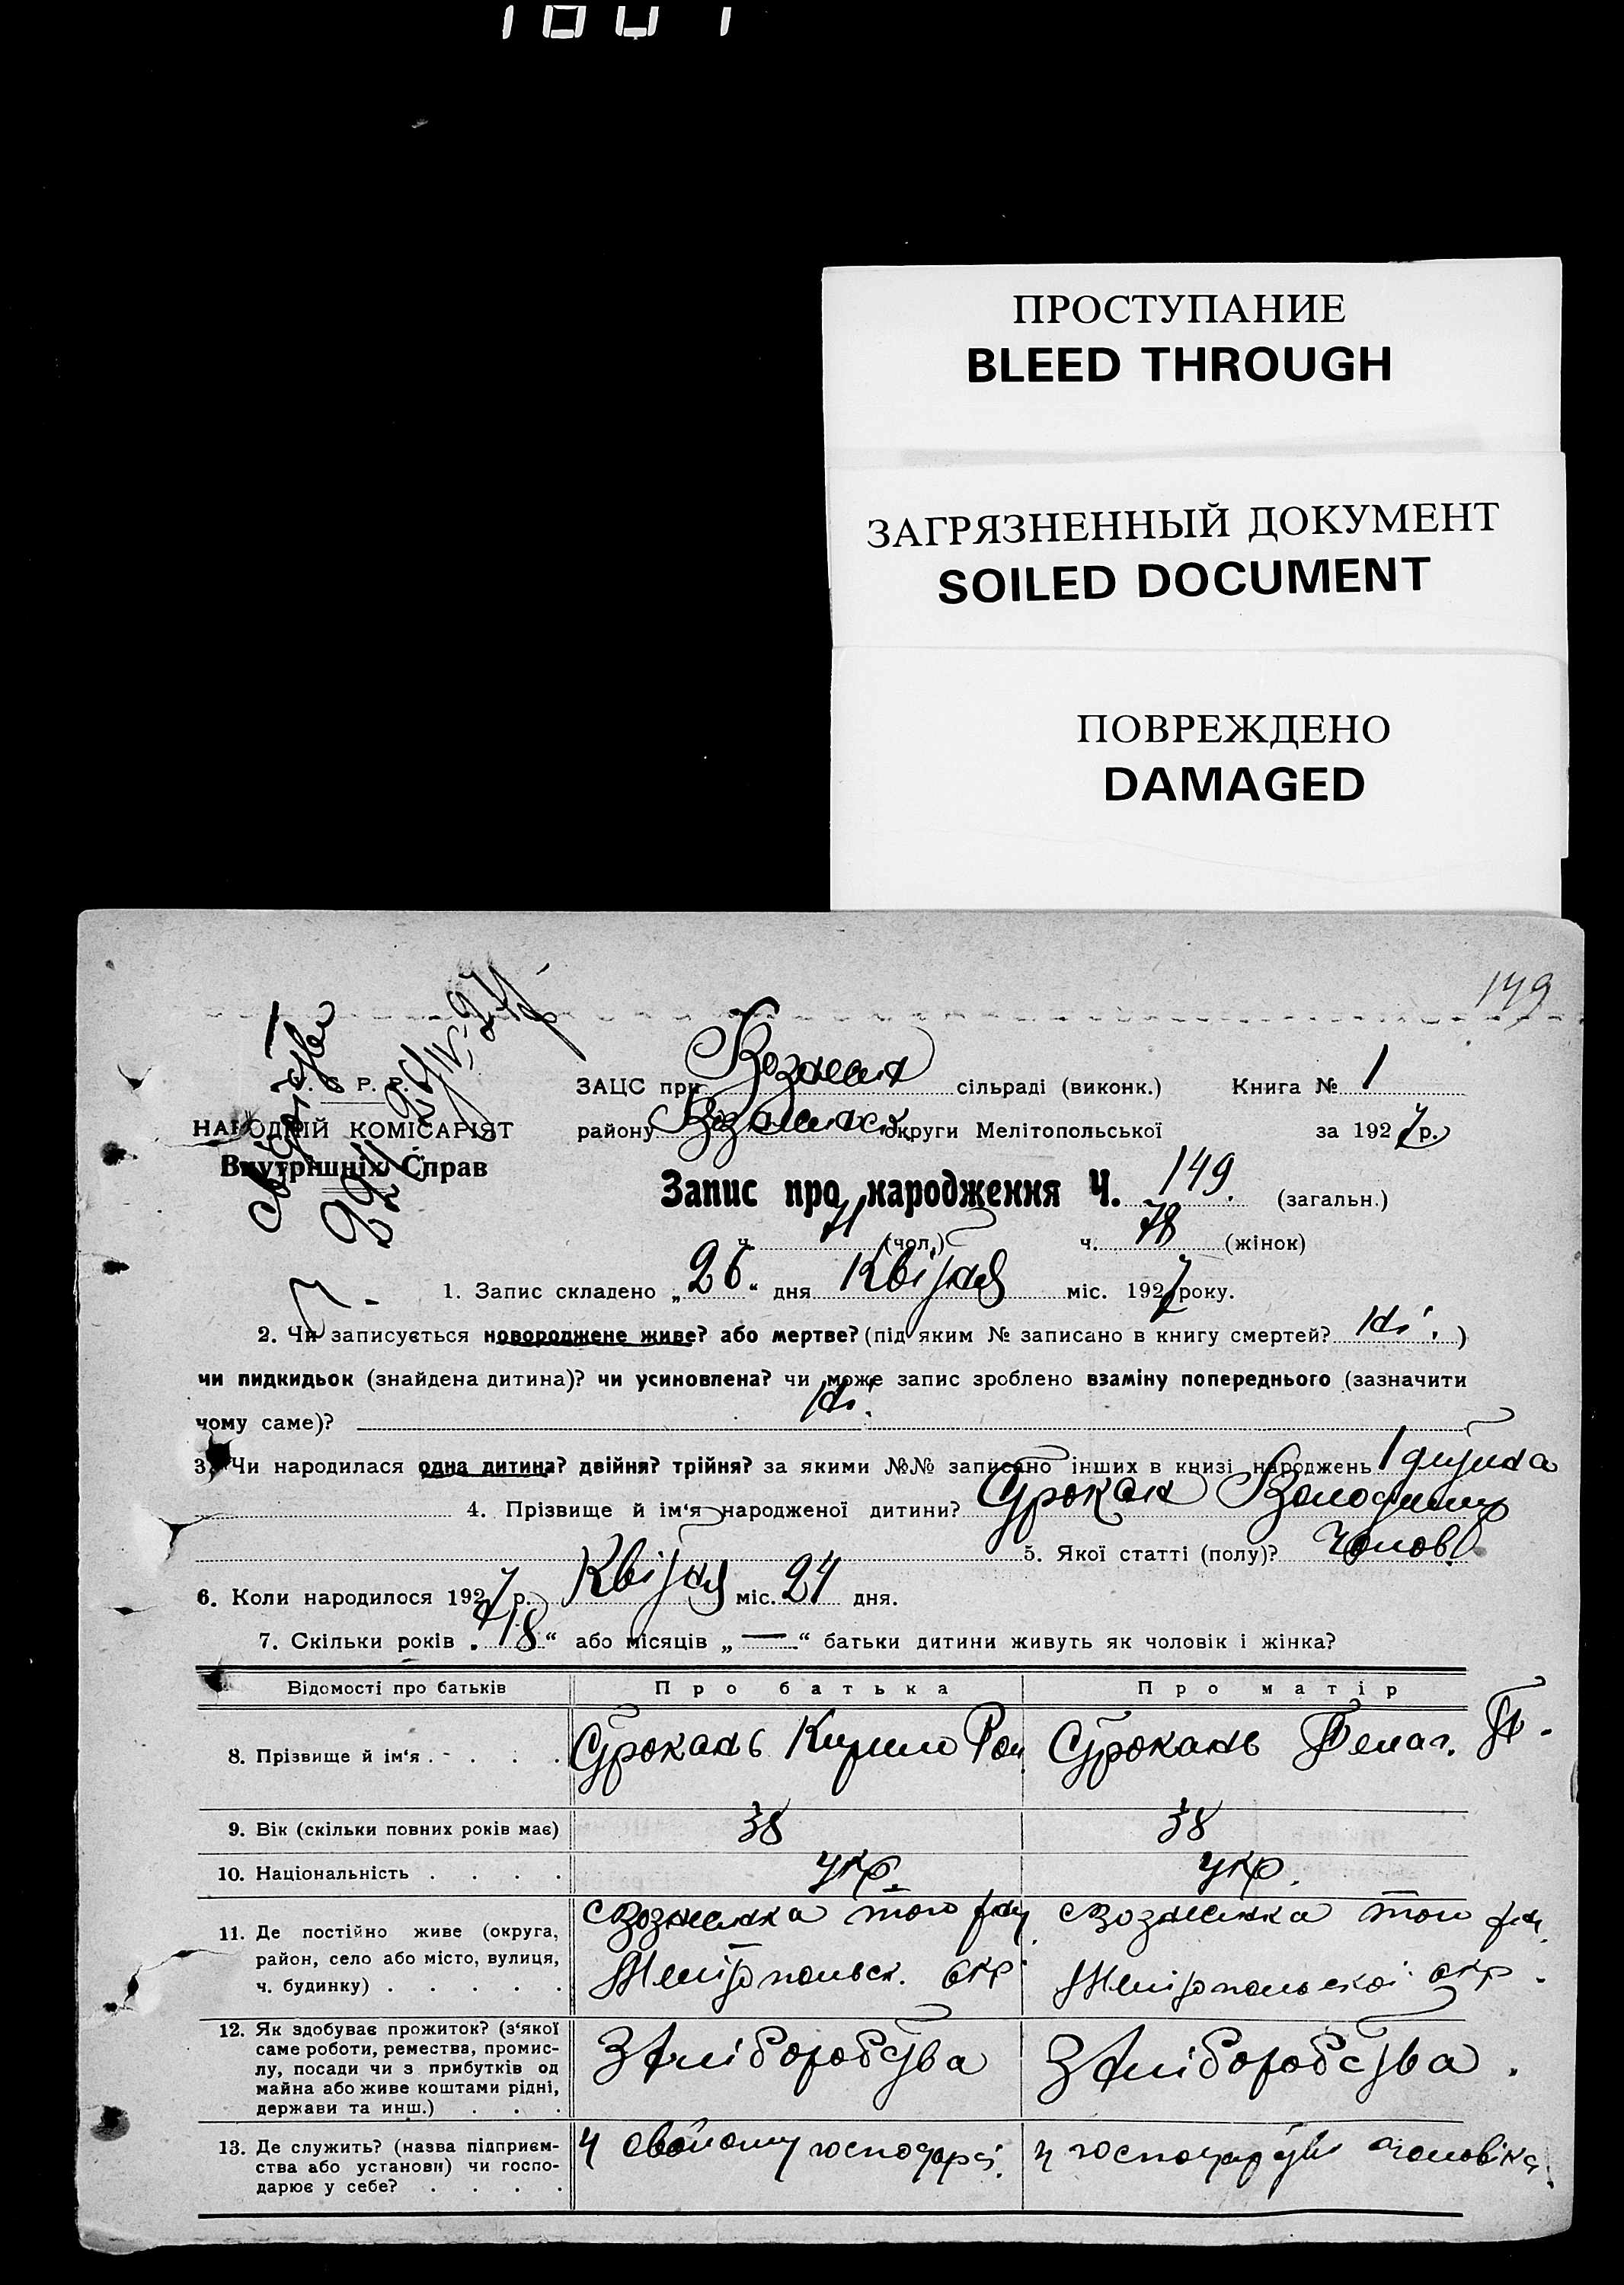 ПРОСТУПАНИЕ
BLEED THROUGH
ЗАГРЯЗНЕННЫЙ ДОКУМЕНТ
SOILED DOCUMENT
ПОВРЕЖДЕНО
DAMAGED
149
Р. Р.
НАРОДНІЙ КОМІСАРІЯТ
Внутрішніх Справ
ЗАЦС при сільраді (виконк.) Книга № 1
району округи Мелітопольської за 1927 р.
Запис про народження Ч. 149. (загальн.)
ч. 71 (чол.) ч. 78 (жінок)
1. Запис складено „26“ дня Квітня міс. 1927 року.
2. Чи записується новороджене живе? або мертве? (під яким № записано в книгу смертей? Ні.)
чи пидкидьок (знайдена дитина)? чи усиновлена? чи може запис зроблено взаміну попереднього (зазначити
чому саме)? Ні.
3. Чи народилася одна дитина? двійня? трійня? за якими №№ записано інших в книзі народжень 1 дитина
4. Прізвище й ім‘я народженої дитини? Строкань Володимир
5. Якої статті (полу)? Чолов.
6. Коли народилося 1927 р. Квітня міс. 24 дня.
7. Скільки років „18“ або місяців „—“ батьки дитини живуть як чоловік і жінка?
Відомості про батьків Про батька Про матір
8. Прізвище й ім‘я . . . . Строкань Кирило Ром Строкань Пелаг.
9. Вік (скільки повних років має) 38 38
10. Національність . . . . Укр. Укр.
11. Де постійно живе (округа,
район, село або місто, вулиця,
ч. будинку) . . . . .
с Вознесенка того рай.
Мелітопольск. окр
с Вознесенка того рай.
Мелітопольскоі окр.
12. Як здобуває прожиток? (з‘якої
саме роботи, ремества, промис-
лу, посади чи з прибутків од
майна або живе коштами рідні,
держави та инш.) . . .
З хліборобства
З хліборобства.
13. Де служить? (назва підприєм-
ства або установи) чи госпо-
дарює у себе? . . . .
У своїому господарсі.
У господарстві чоловіка.